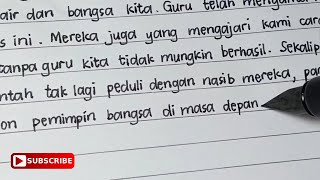 air dan bangsa kita. Guru telah
s ini. Mereka juga yang mengajari kami
tanpa guru kita tidak mungkin berhasil. Sekalip
ntah tak lagi peduli dengan nasib mereka, pa
on pemimpin bangsa di masa depan
SUBSCRIBE